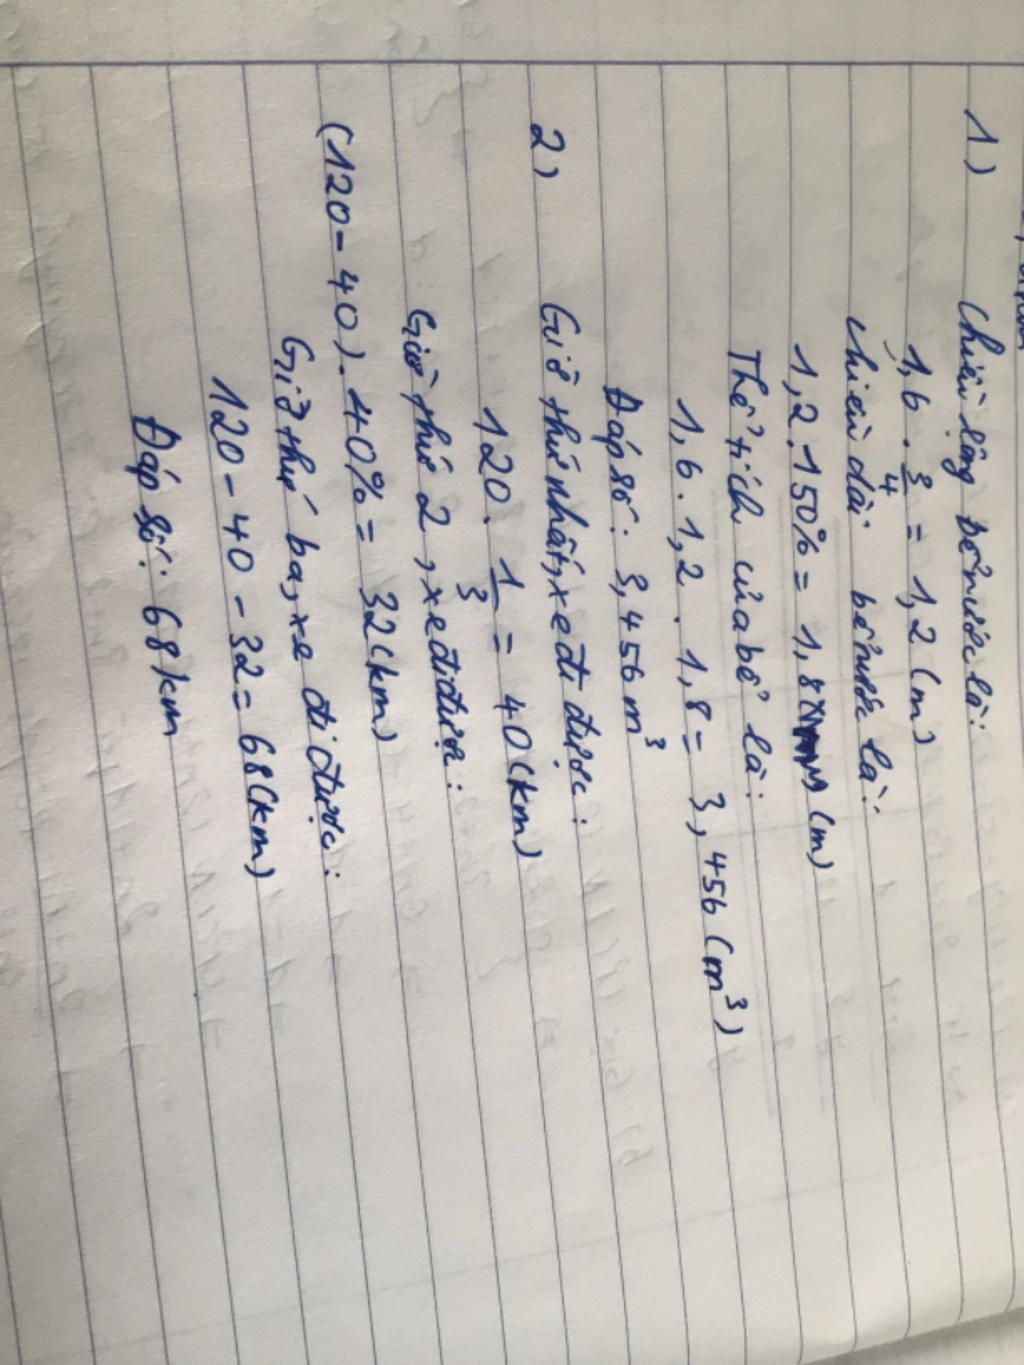 1) Chiều rộng bể nước là:
1,6 . 3/4 = 1,2 (m)
Chiều dài bể nước là:
1,2 . 150% = 1,8 (m)
Thể tích của bể là:
1,6 . 1,2 . 1,8 = 3,456 (m³)
Đáp số: 3,456 m³
2) Giờ thứ nhất, xe đi được:
120 . 1/3 = 40 (km)
Giờ thứ 2, xe đi được:
(120 - 40) . 40% = 32 (km)
Giờ thứ ba, xe đi được:
120 - 40 - 32 = 68 (km)
Đáp số: 68 km